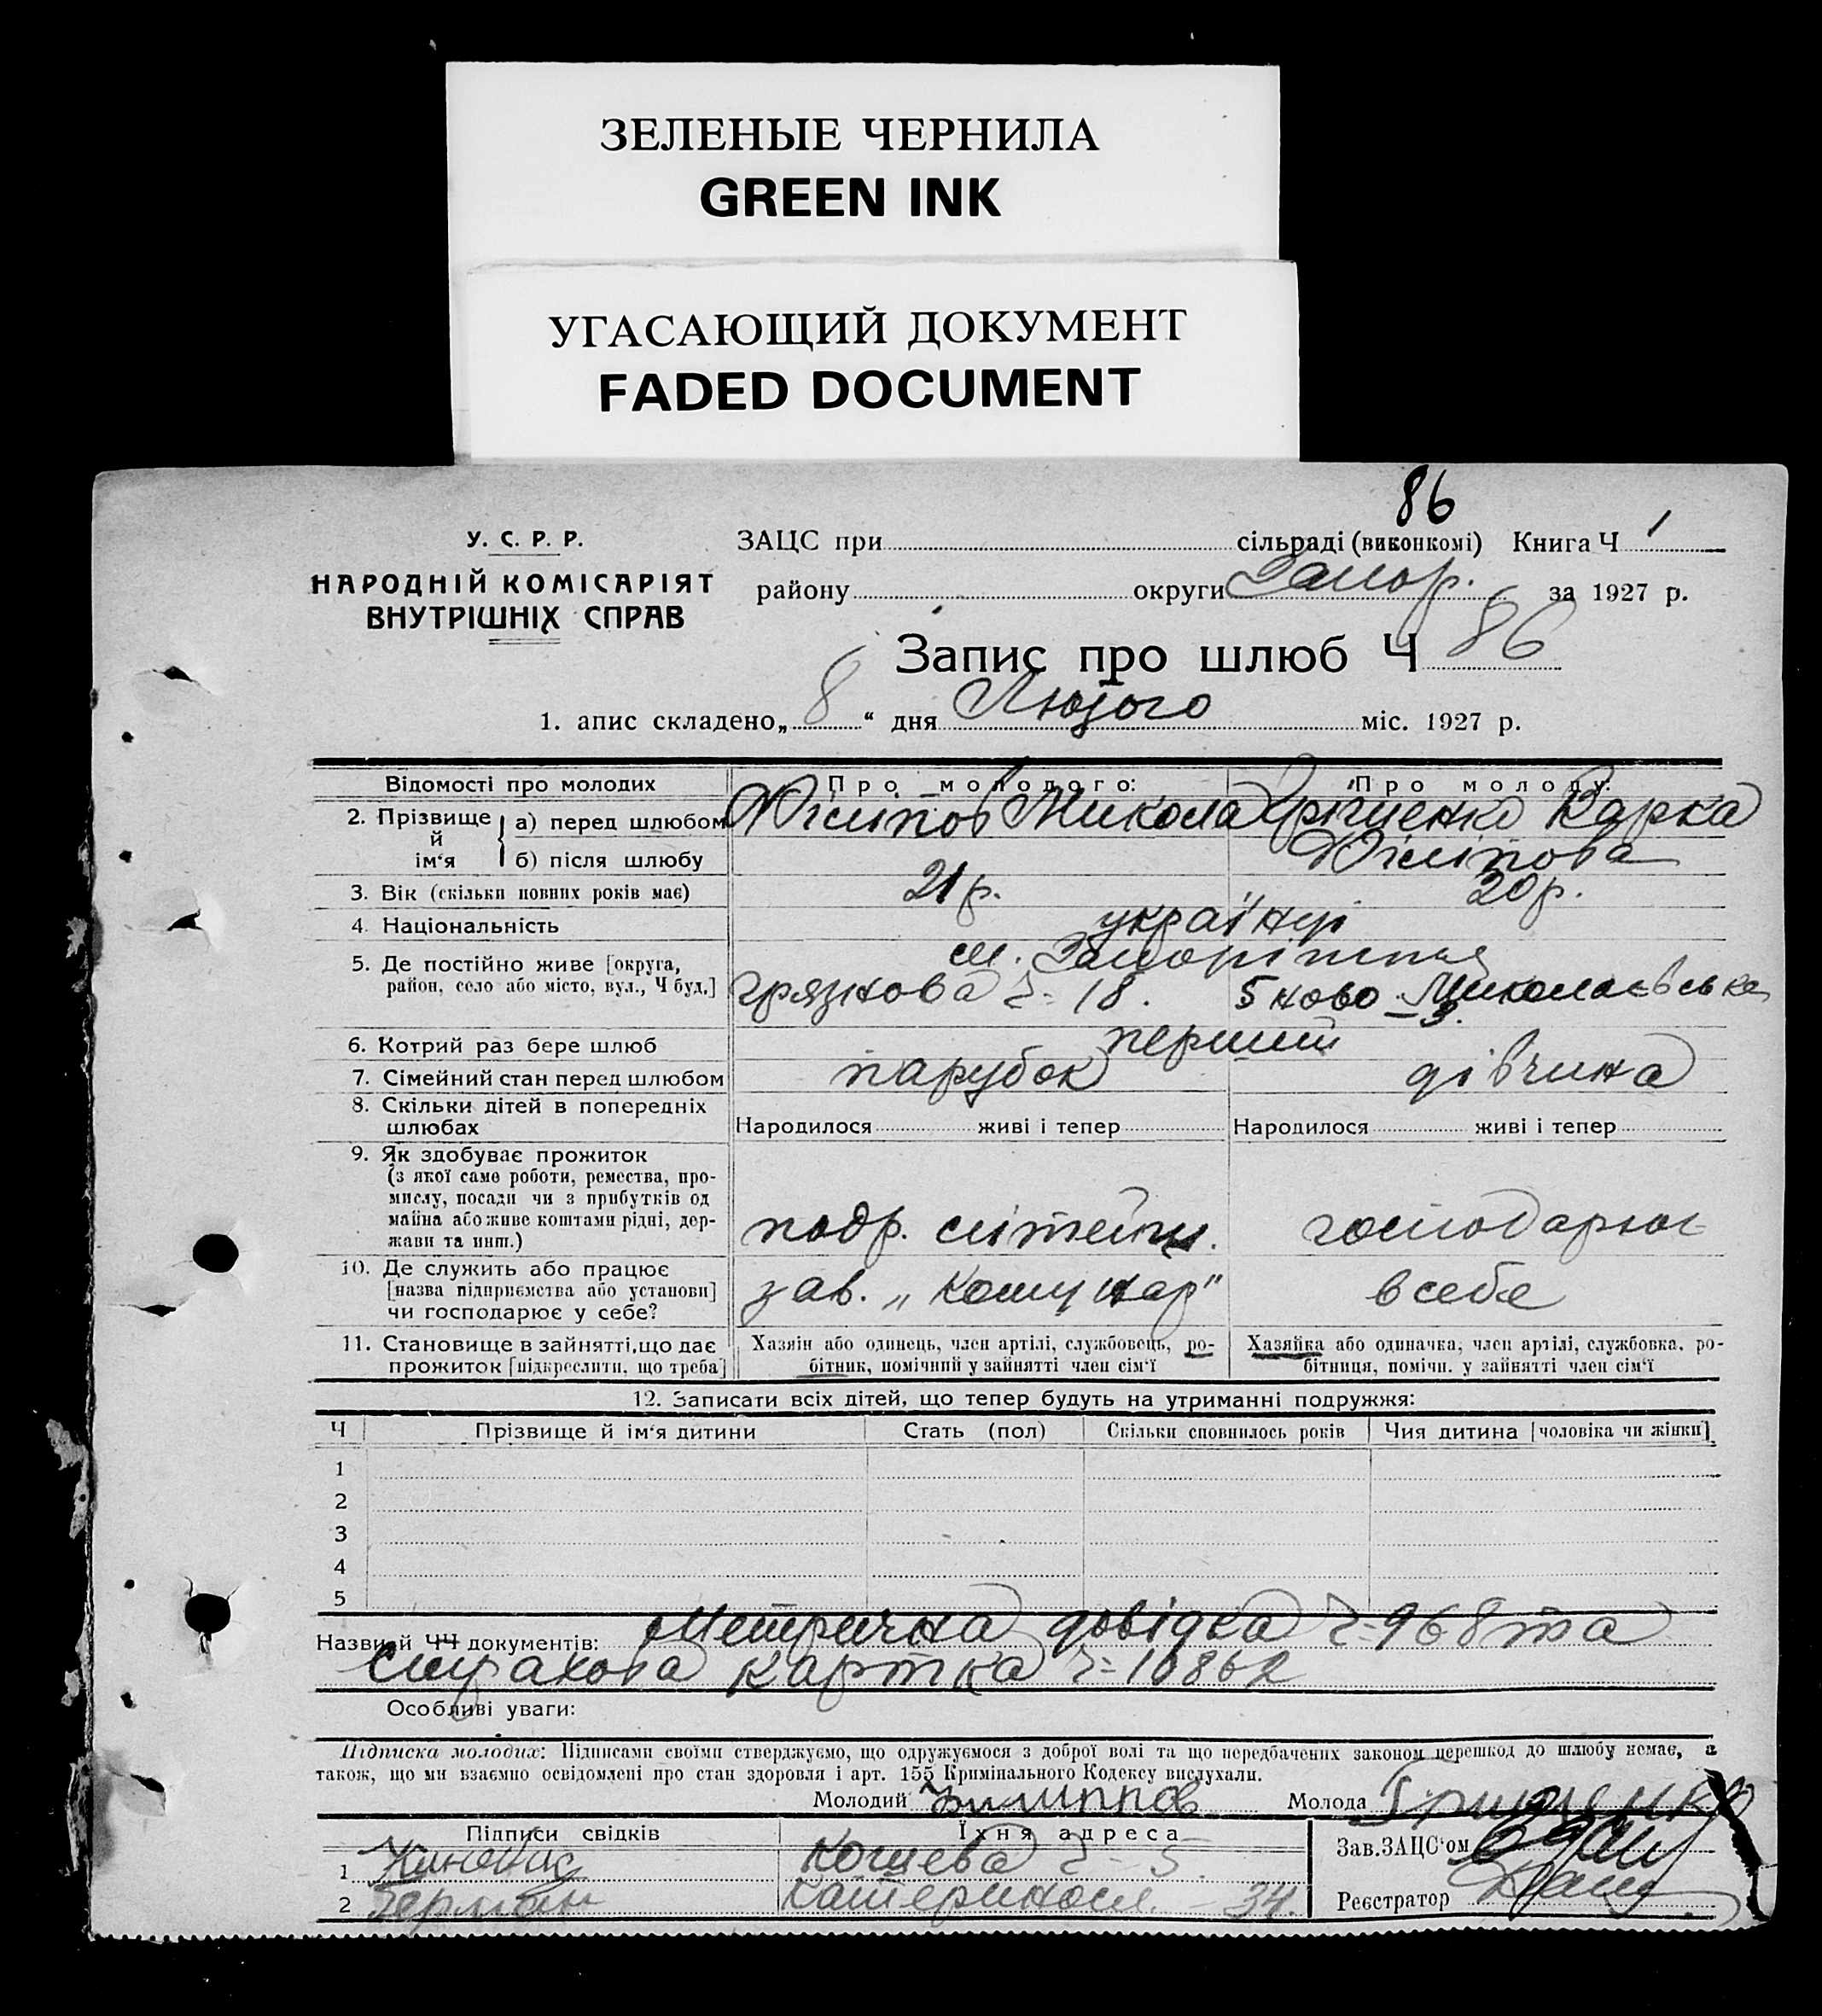 ЗЕЛЕНЫЕ ЧЕРНИЛА
GREEN INK
УГАСАЮЩИЙ ДОКУМЕНТ
FADED DOCUMENT
86
У. С. Р. Р.
НАРОДНІЙ КОМІСАРІЯТ
ВНУТРІШНІХ СПРАВ
ЗАЦС при сільраді (виконкомі) Книга Ч 1
району округи Запор. за 1927 р.
Запис про шлюб Ч 86
1. апис складено „8“ дня Лютого міс. 1927 р.
Відомості про молодих Про молодого: Про молоду:
2. Прізвище й ім‘я а) перед шлюбом Філіпов Микола Гріценко Варка
б) після шлюбу Філіпова
3. Вік (скільки повних років має) 21 р. 20 р.
4. Національність українці
5. Де постійно живе [округа, район, село або місто, вул., Ч буд.] м. Запоріжжя
Грязнова Ч= 18. 5 Ново-Миколаєвська 3.
6. Котрий раз бере шлюб перший
7. Сімейний стан перед шлюбом парубок дівчина
8. Скільки дітей в попередніх шлюбах Народилося живі і тепер Народилося живі і тепер
9. Як здобуває прожиток
(з якої саме роботи, ремества, про-
мислу, посади чи з прибутків од
майна або живе коштами рідні, дер-
жави та инш.) подр. господарює
10. Де служить або працює
[назва підприємства або установи]
чи господарює у себе? зав. „Комунар“ в себе
11. Становище в зайнятті, що дає
прожиток [підкреслити, що треба]
Хазяїн або одинець, член артілі, службовець, ро-
бітник, помічний у зайнятті член сім‘ї
Хазяйка або одиначка, член артілі, службовка, ро-
бітниця, помічн. у зайнятті член сім‘ї
12. Записати всіх дітей, що тепер будуть на утриманні подружжя:
Ч Прізвище й ім‘я дитини Стать (пол) Скільки сповнилось років Чия дитина [чоловіка чи жінки]
1
2
3
4
5
Назви й ЧЧ документів: Метрична довідка Ч= 968 та
Страхова картка Ч= 10862
Особливі уваги:
Підписка молодих: Підписами своїми стверджуємо, що одружуємося з доброї волі та що передбачених законом перешкод до шлюбу немає, а
також, що ми взаємно освідомлені про стан здоровля і арт. 155 Кримінального Кодексу вислухали.
Молодий Филиппов Молода Грищенко
Підписи свідків Їхня адреса
1 Кошева Ч= 5
2 Герман Катериносл. - 34.
Зав. ЗАЦС‘ом
Реєстратор